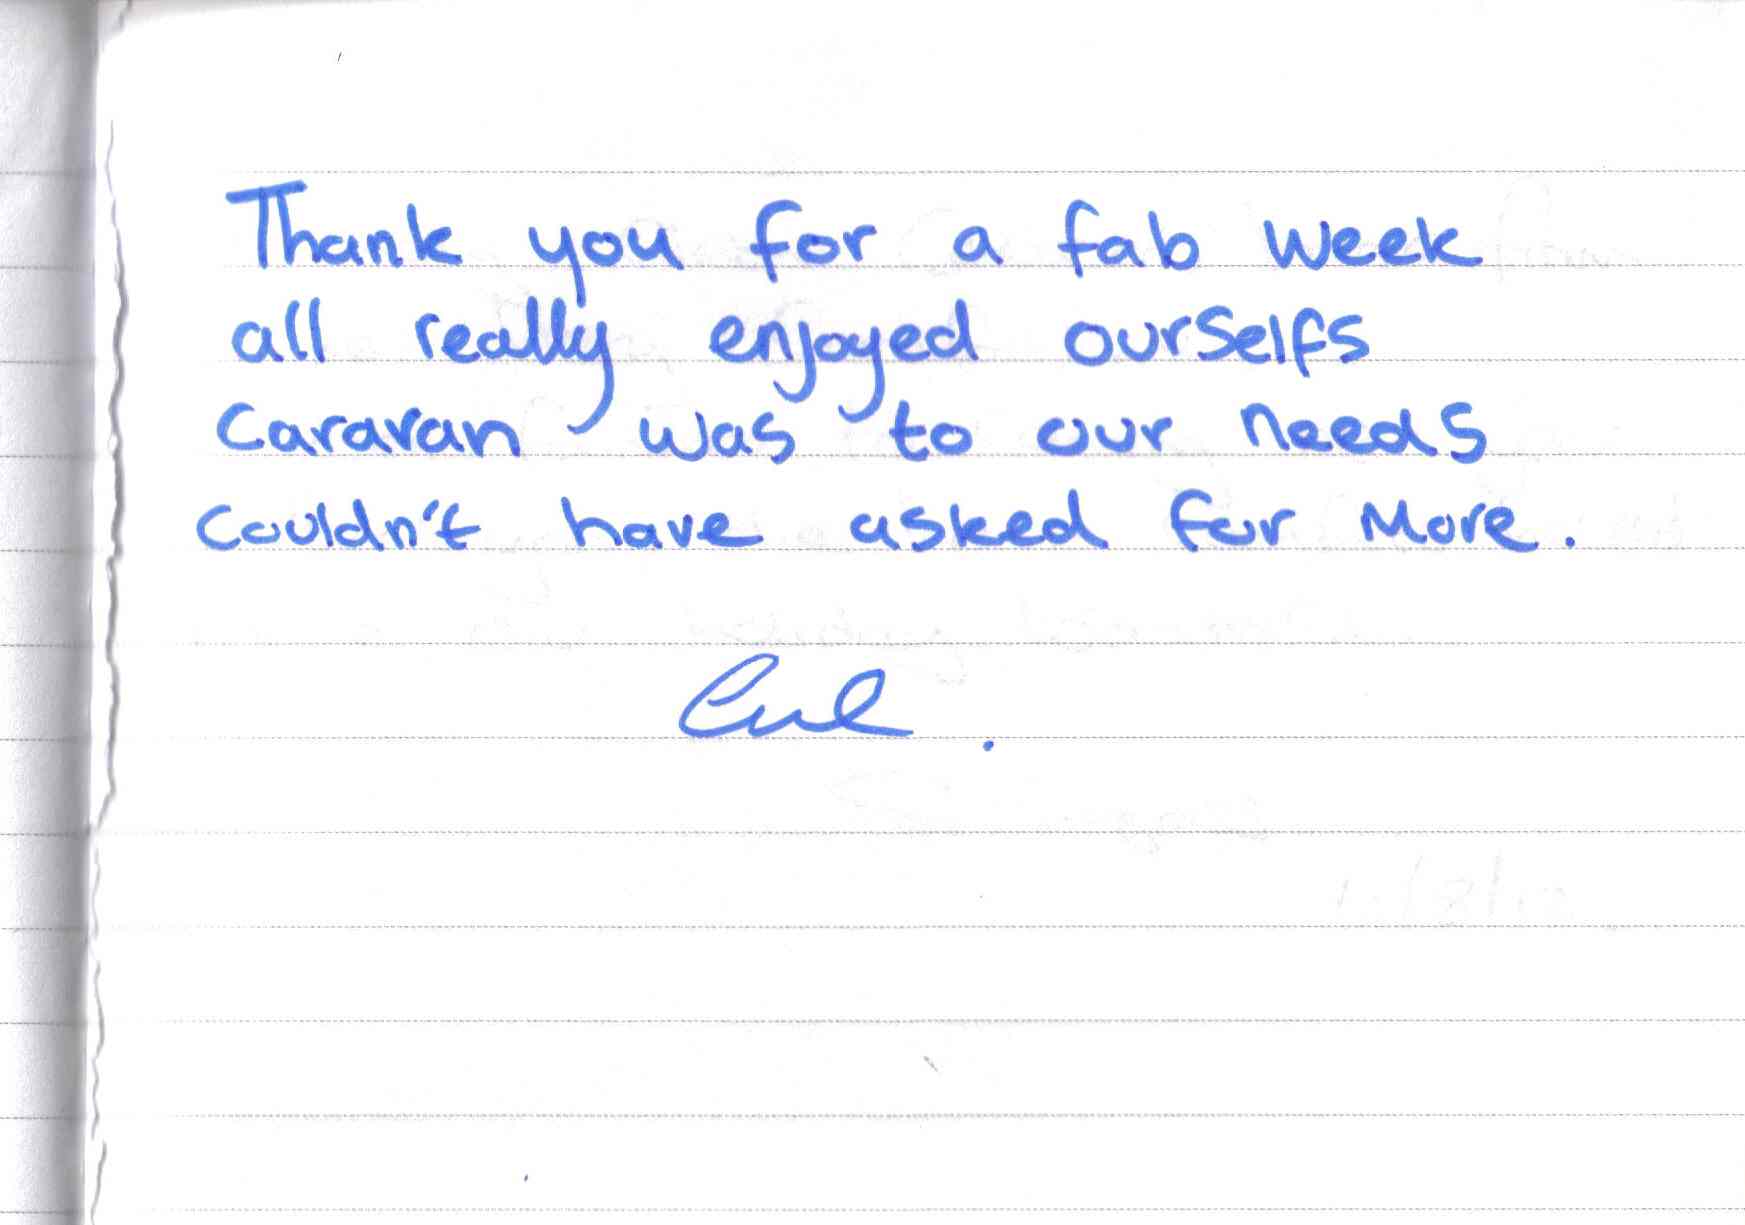 Thank you for a fab week
all really enjoyed ourselfs
Caravan was to our needs
Couldn't have asked for More.